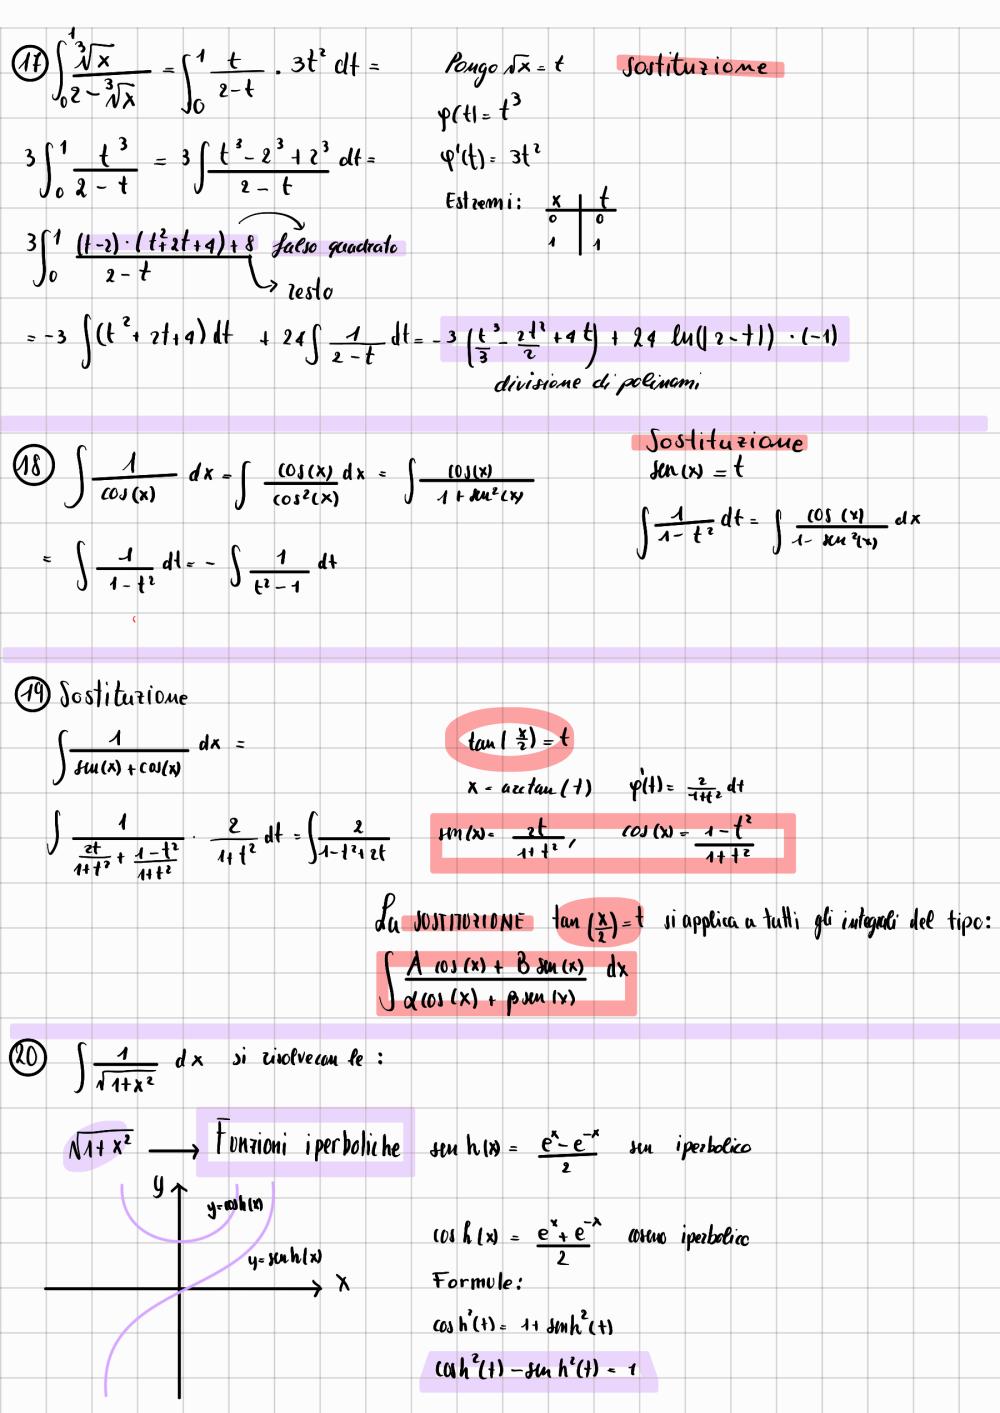 17 ∫₀¹ ∛x / (2 - ∛x) = ∫₀¹ t / (2 - t) · 3t² dt = Pongo √x = t sostituzione
φ(t) = t³
3 ∫₀¹ t³ / (2 - t) = 3 ∫ (t³ - 2³ + 2³) / (2 - t) dt = φ'(t) = 3t²
Estremi: x | t
0 | 0
1 | 1
3 ∫₀¹ ((t-2) · (t² + 2t + 4) + 8) / (2 - t) falso quadrato
resto
= -3 ∫ (t² + 2t + 4) dt + 24 ∫ 1 / (2 - t) dt = -3 (t³/3 - 2t²/2 + 4t) + 24 ln(|2 - t|) · (-1)
divisione di polinomi
Sostituzione
18 ∫ 1 / cos(x) dx = ∫ cos(x) / cos²(x) dx = ∫ cos(x) / (1 + sen²(x)) sen(x) = t
∫ 1 / (1 - t²) dt = ∫ cos(x) / (1 - sen²(x)) dx
= ∫ 1 / (1 - t²) dt = - ∫ 1 / (t² - 1) dt
19 Sostituzione
∫ 1 / (sen(x) + cos(x)) dx = tan(x/2) = t
x = arctan(t) φ'(t) = 2 / (1+t²) dt
∫ 1 / (2t/(1+t²) + (1-t²)/(1+t²)) · 2 / (1+t²) dt = ∫ 2 / (1-t²+2t) sen(x) = 2t / (1+t²), cos(x) = (1-t²) / (1+t²)
La SOSTITUZIONE tan(x/2) = t si applica a tutti gli integrali del tipo:
∫ (A cos(x) + B sen(x)) / (α cos(x) + β sen(x)) dx
20 ∫ 1 / √(1+x²) dx si risolve con le :
√(1+x²) → Funzioni iperboliche sen h(x) = (eˣ - e⁻ˣ) / 2 sen iperbolico
y y=cosh(x)
cos h(x) = (eˣ + e⁻ˣ) / 2 coseno iperbolico
y=senh(x)
x Formule:
cosh²(t) = 1 + senh²(t)
cosh²(t) - senh²(t) = 1